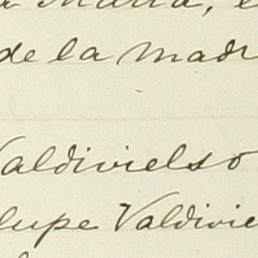 a María, e
de la madr
Valdivielso
lupe Valdivie